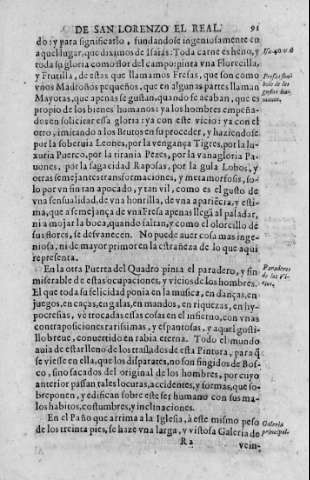 DE SAN LORENZO EL REAL. 91
do: y para significarlo, fundandose ingeniosamente en
aquel lugar, que diximos de Isaias: Toda carne es heno, y
toda su gloria como flor del campo: pinta vna Florecilla,
y Frutilla, de estas que llamamos Fresas, que son como
vnos Madroños pequeños, que en algunas partes llaman
Mayotas, que apenas se gustan, quando se acaban, que es
propio de los bienes humanos: ya los hombres empeña-
dos en solicitar essa gloria: ya con este vicio: ya con el
otro, imitando a los Brutos en su proceder, y haziendose
por la soberuia Leones, por la vengança Tigres, por la lu-
xuria Puerco, por la tirania Pezes, por la vanagloria Pa-
uones, por la sagacidad Raposas, por la gula Lobos, y
otras semejantes transformaciones, y metamorfosis, so-
lo por vn fin tan apocado, y tan vil, como es el gusto de
vna sensualidad, de vna honrilla, de vna apariēcia, y esti-
ma, que a semejança de vna Fresa apenas llegā al paladar,
ni a mojar la boca, quando faltan, y como el olorcillo de
sus flores, se desvanecen. No puede auer cosa mas inge-
niosa, ni de mayor primor en la estrañeza de lo que aqui
representa.
En la otra Puerta del Quadro pinta el paradero, y fin
miserable de estas ocupaciones, y vicios de los hombres.
El que toda su felicidad ponia en la musica, en danças, en
juegos, en caças, en galas, en mandos, en riquezas, en hy-
pocresias, vè trocadas essas cosas en el infierno, con vnas
contraposiciones rarissimas, y espantosas, y aquel gusti-
llo breue, conuertido en rabia eterna. Todo el mundo
auia de estar lleno de los traslados de esta Pintura, para q̃
se viesse en ella, que los disparates, no son fingidos de Bos-
co, sino sacados del original de los hombres, por cuyo
anterior passan tales locuras, accidentes, y formas, que so-
breponen, y edifican sobre este ser humano con sus ma-
los habitos, costumbres, y inclinaciones.
En el Paño que arrima a la Iglesia, à este mismo peso
de los treinta pies, se haze vna larga, y vistosa Galeria de
Ra vein-
Paradero
de los Vi-
cios.
Galeria
principal.